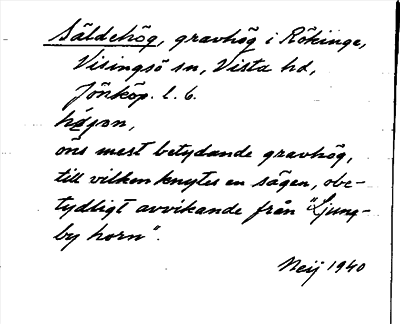 Säldehög, gravhög i Rökinge,
Visingsö sn, Vista hd,
Jönköp. l. 6.
ons mest betydande gravhög,
till vilken knytes en sägen, obe-
tydligt avvikande från "Ljung-
by horn".
Neij 1940